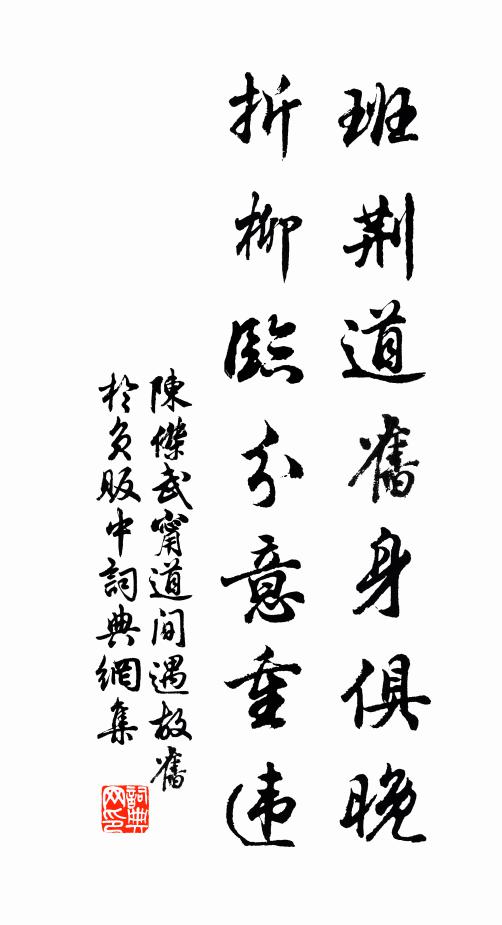 班荆道舊身俱晚
折柳臨分意重违
陳傑武甯道间遇故舊
於負販中詞典網集
詞典
网印